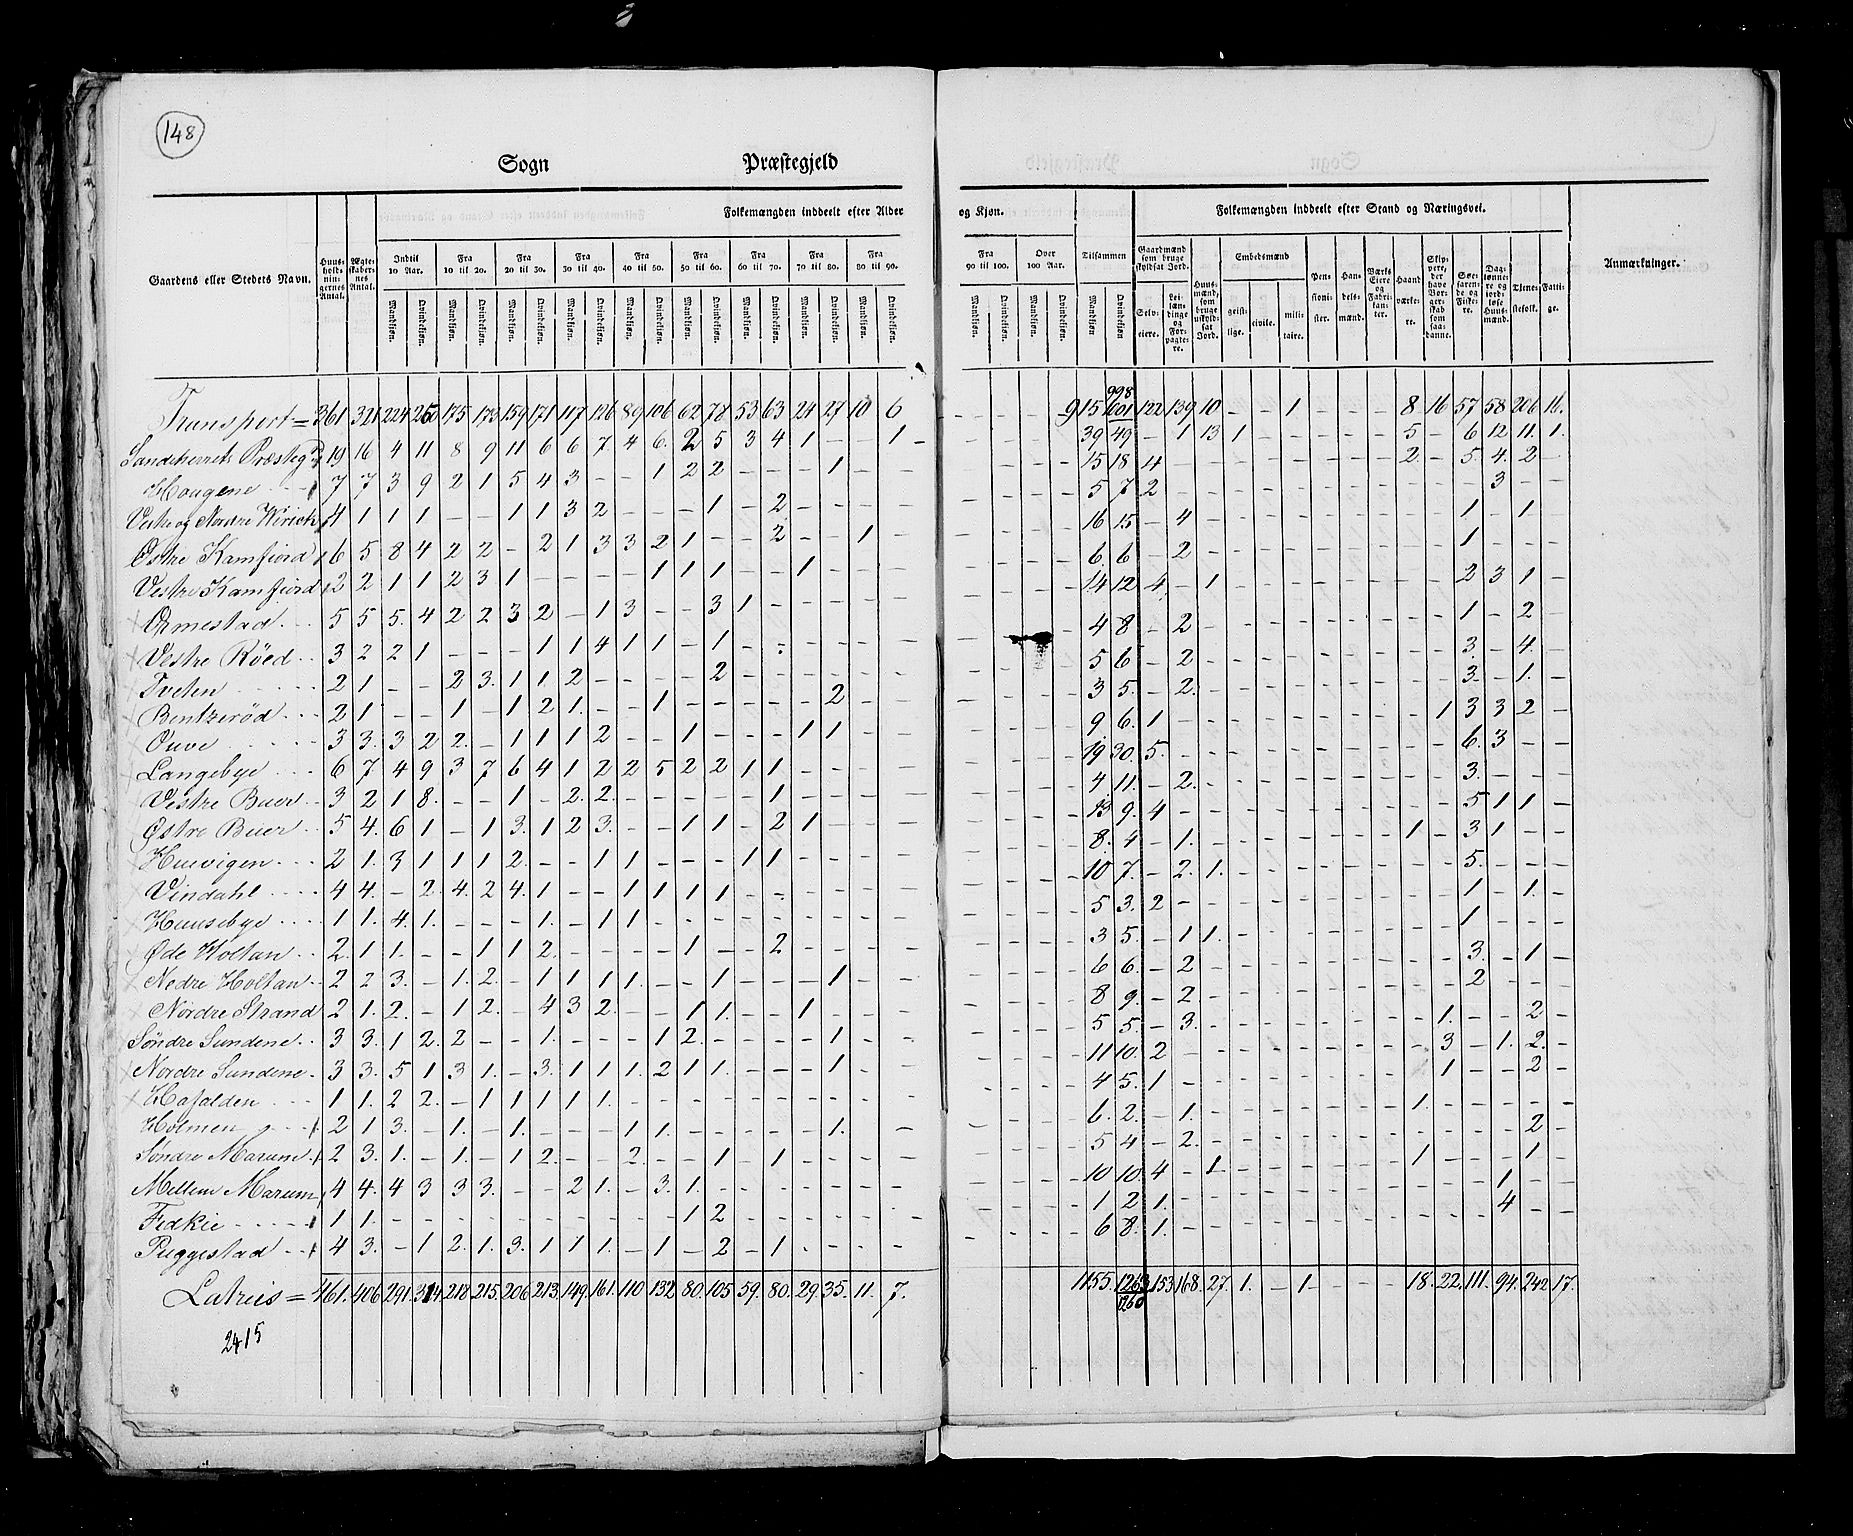 148
Sogn Præstegjeld
Gaardens eller Stedets Navn. Huusholdningernes Antal. Ægteskabernes Antal. Folkemængden inddeelt efter Alder og Kjøn. Tilsammen Folkemængden inddeelt efter Stand og Næringsvei. Anmærkninger.
Indtil 10 Aar. Fra 10 til 20. Fra 20 til 30. Fra 30 til 40. Fra 40 til 50. Fra 50 til 60. Fra 60 til 70. Fra 70 til 80. Fra 80 til 90. Fra 90 til 100. Over 100 Aar.
Mandkjøn. Qvindekjøn.
Gaardmænd som bruge skyldsat Jord. Selveiere. Leilændinge og Forpagtere. Huusmænd, som bruge uskyldsat Jord. Embedsmænd geistlige. civile. militaire. Pensionister. Handelsmænd. Værks Eiere og Fabrikanter. Haandværkere. Skippere, der have Borgerskab som saadanne. Søefarende og Fiskere. Daglønnere og jordløse Huusmænd. Tjenestefolk. Fattige.
Transport = 361 321 224 250 175 173 159 171 117 126 89 106 62 78 53 63 24 27 10 6 - - - - 915 998 1001 122 139 10 - - 1 - - - 8 16 57 58 206 16.
Sandeherrets Præsteg 19 16 4 11 8 9 11 6 6 7 4 6. 2 5 3 4 1 - - 1 - 39 49 - 1 13 1 - - - - - 5 - 6 12 11. 1.
Hougene 7 7 3 9 2 1 5 4 3 - - 1 2 2 - - - 1 - - 15 18 4 - - - - - - - - 2 - 5. 4. 2 -
Vestre og Nordre Wirich 4 1 1 1 - - 1 1 3 2 - - - 1 - 2 5 7 2 3
Østre Kamfjord 6 5 8 4 2 2 - 2 1 3 3 2 1 - - 2 - - 1 - 16 15 - 4 1 - 1 -
Vestre Kamfjord 2 2 1 1 2 3 1 - - - - 1 1 1 - - 1 - - - 6 6 - 2 1
Ormestad 5 5 5. 4 2 2 3 2 - 1 3 - - 3 1 - - - - - 14 12 4 - 1 2 3 1 -
Vestre Röed 3 2 2 1 - - - 1 1 4 1 1 - 1 - - 4 8 - 2 1 - 2 -
Tveten 2 1 - - 2 3. 1 1. 2 - - - - 2 5 6 - 2 3. - 4. -
Bentzeröd 2 1 - - 1 - 1 2 1. - - 1 - - - - - 2 - - 3 5. - 2. 3. - 1. -
Ouve 3 3. 3 2 2. - 1 1 1 2 - - 1 - - - 1 1 - - 9 6. 1 1 3 3 2 -
Langebye 6 7 4 9 3 7 6 4 1 2 2 5 2 2 1 1 - - - - 19 30. 5. 6. 3 - -
Vestre Buer 3 2 1 8. - - 1 - 2. 2. - - - - - 1 - - - - 4 11. - 2. 3. - - -
Østre Buer 5 4. 6 1 - 1 3. 1 2 3. - - 1 1 - 2 1 - - - 13 9. 4 5 1 1 -
Huvigen 2 1. 3 1 1 1 2. - - 1 1 - - - 1 1 - - - - 8. 4 - 1. 1 - 3 1. - -
Vindahl 4 4. - 2. 4. 2 4. 1 - - 1 1 1 1 - - - - - - 10 7. - 2. 1. 5. - - -
Huusebye 1 1. 4. 1. - - - 1. - 1 1 - - - - - - - - - 5 3. 2 1 - 1. -
Øde Holtan 2. 1 1. - - 1 1 2. - - - - 1 - - 2 - - - - 3 5. - 1 1. 1. - - -
Nedre Holtan 2 2 3. - 1. 2. - 1 1 1 1. - - 1 - - - 1. - - 6 6 - 2 3. - 1 -
Nordre Strand 2 1. 2. - 1 2. - 4 3 2. - - 1 1. - - 1 - - - 8 9. - 2. 2
Søndre Sundene 3 3. 1 2. 2 - - 1. - - - 1 2. - - - - 1 - - 5 5. - 3. 1. - - 2 -
Nordre Sundene 3 3. 5 1 3 1. - 3. 1 1 1. 2 1 1. - - - 1 - - 11 10. 2 3 - 1. 2. -
Hafalden 1 1. 2 2. - 1 1 1 1 1. - - - - - - - - - - 4 5. 1 1 - - 2 -
Holmen 2 1 3. - 1. - 1. - - - 1 1. - - - - - 1. - 6. 2. - 1. 1.
Søndre Marum 2 3. 1. - 1. - 1 2. - - 2. - - 1 - 1 - - - - 5 4 - 2. 2 -
Mellem Marum 4 4. 4 3 3 3. - - 2 1. - 3. 1. - - - - - - - 10 10. 4 - 1 1 - - 1 -
Fedkie 1 1. - - - - - - - - - - 1 2 - - - - - - 1 2 1. 1
Puggestad 4 3. - 1 2. 1. 3. 1 1 1. - 1 - 2 - 1 - - - - 6 8. 1. 4
Latus = 461. 406 291. 314 218 215. 206 213. 149. 161. 110 132 80. 105 59. 80. 29. 35. 11. 7. 1155. 1263 1260 153 168. 27. 1. - 1. - - - 18. 22. 111. 94. 242 17.
2415